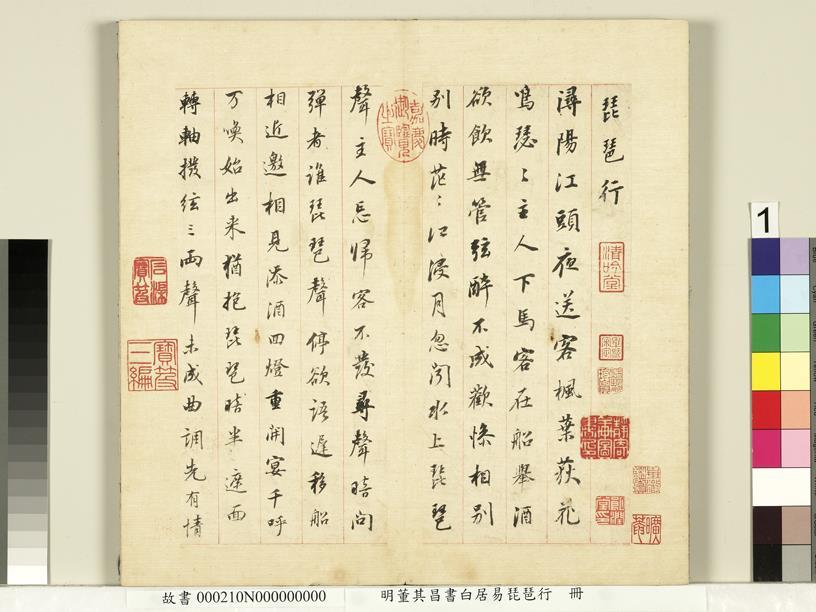 琵琶行
潯陽江頭夜送客楓葉荻花
鳴瑟〻主人下馬客在船舉酒
欲飲無管弦醉不成歡慘相別
別時茫〻江浸月忽聞水上琵琶
聲主人忘歸客不發尋聲暗問
彈者誰琵琶聲停欲語遲移船
相近邀相見添酒回燈重開宴千呼
万喚始出来猶抱琵琶暗半遮面
轉軸撥絃三兩聲未成曲調先有情
清吟堂
嘉慶御覽之寶
石渠寶笈
寶笈三編
故書 000210N000000000
明董其昌書白居易琵琶行 冊
1